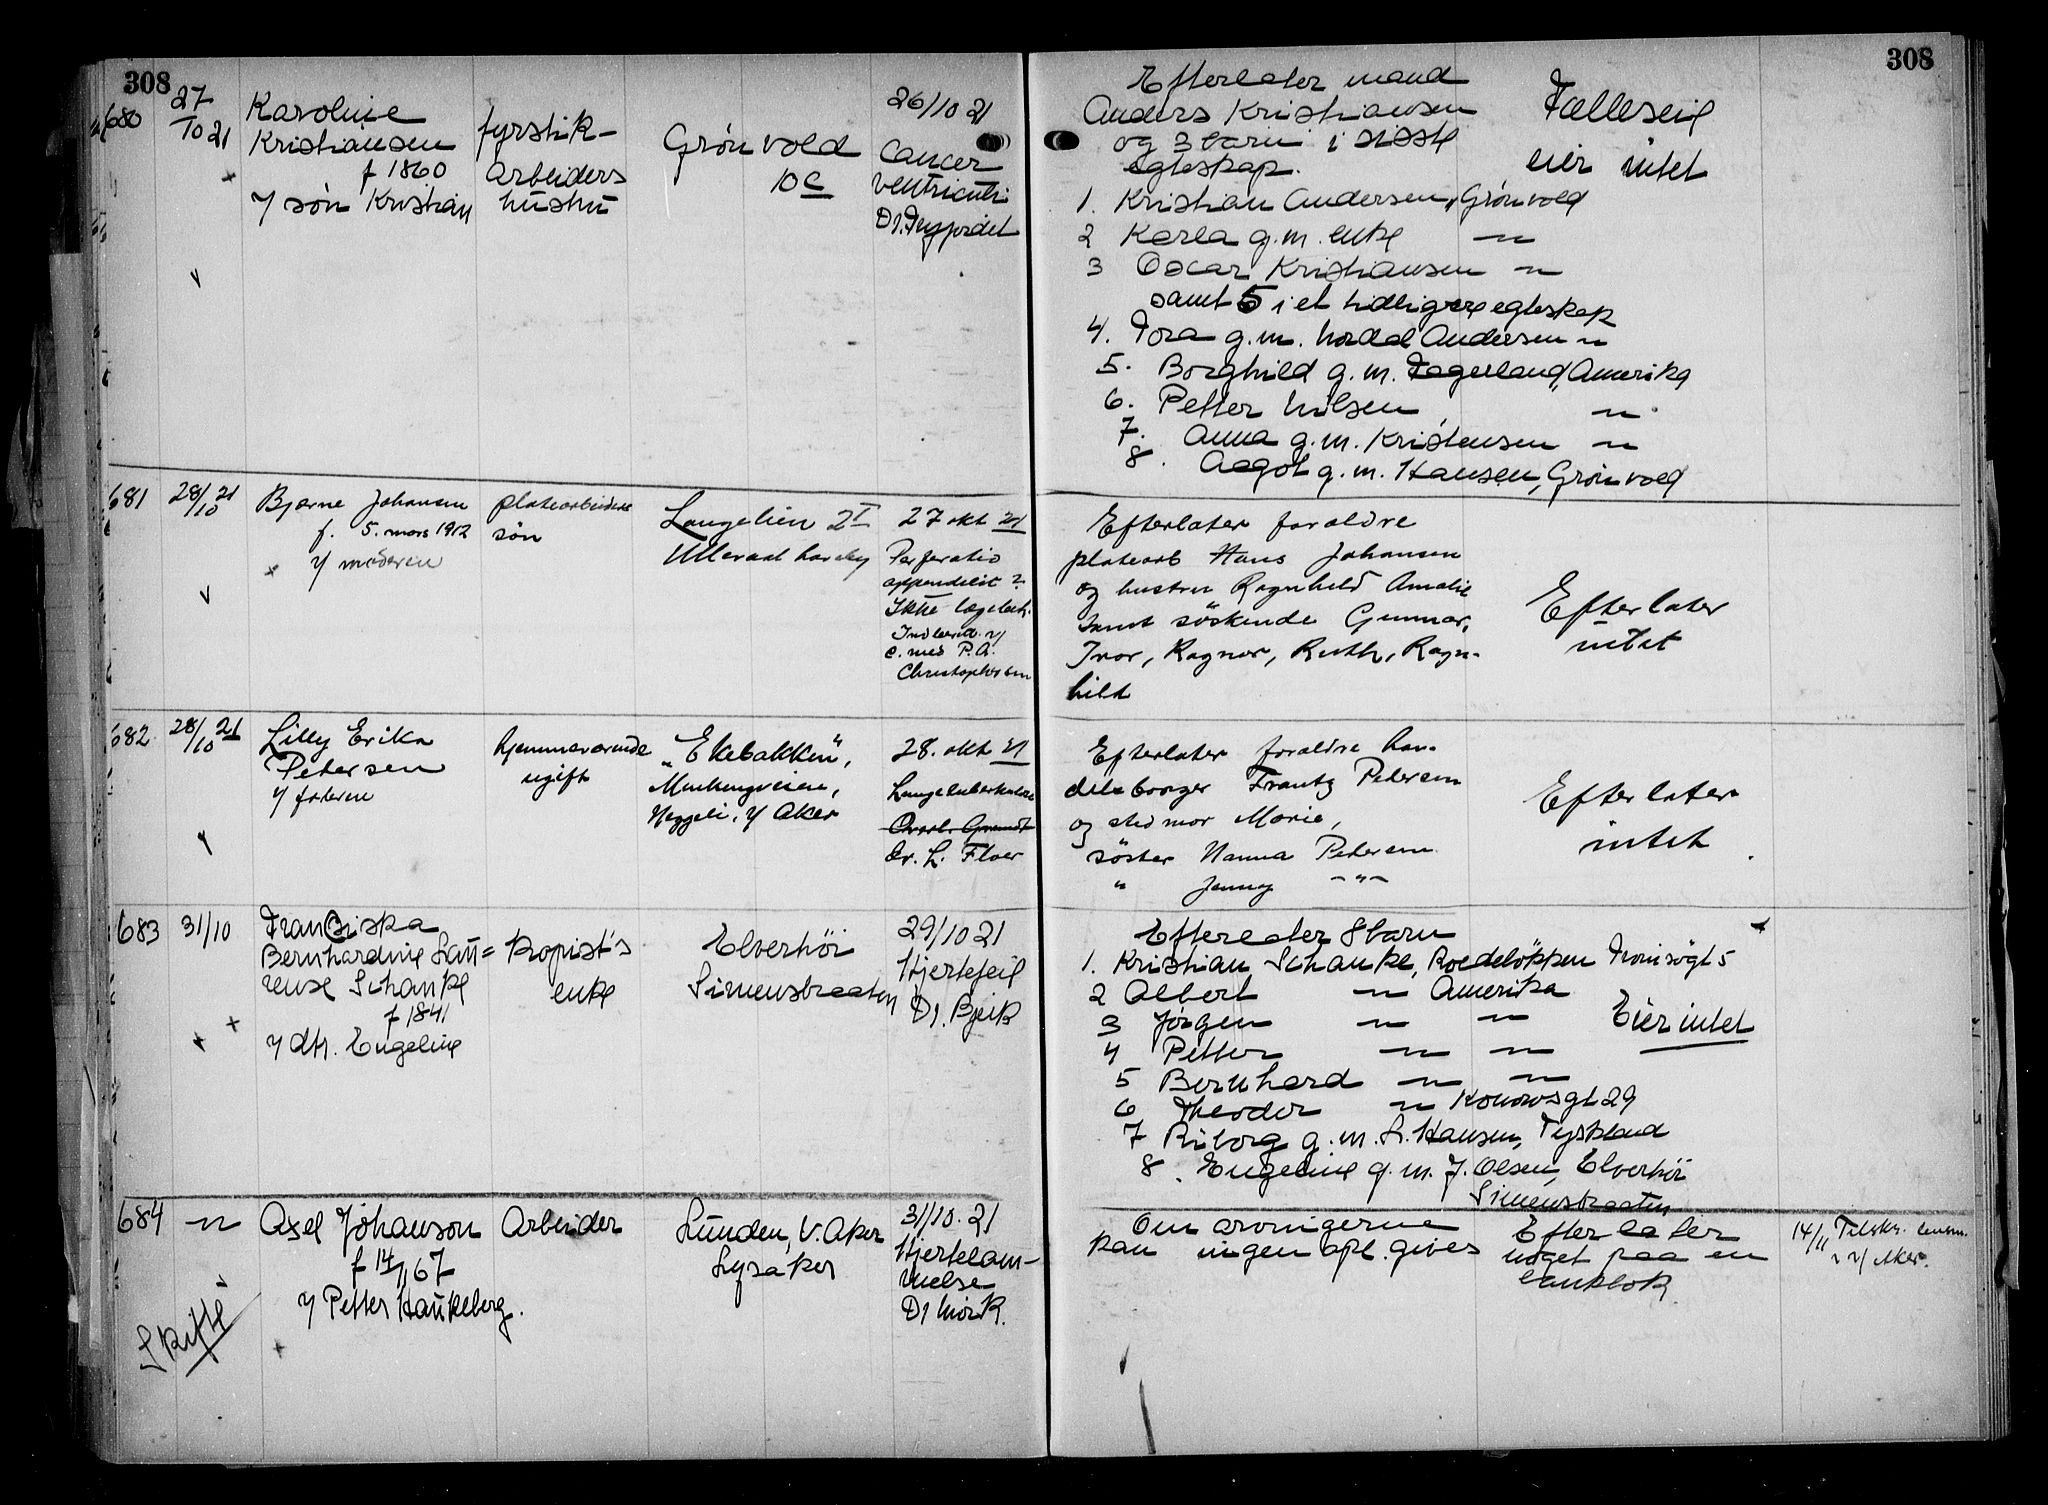 308
308
680
27/10 21
Karoline
Kristiansen
f 1860
v/ søn Kristian
fyrstik-
arbeiders
hustru
Grønvold
10c
26/10 21
Cancer
ventriculi
Efterlater mand
Anders Kristiansen
og 3 barn i siste
egteskap.
1. Kristian Andersen, Grønvold
2 Karla g.m. enke — " —
3 Oscar Kristiansen — " —
samt 5 i et tidligere egteskap
4. Tora g.m. Andersen — " —
5. Borghild g.m. Fagerland, Amerika
6. Petter Nilsen, — " —
7. Anna g.m. Kristensen — " —
8. Aagot g.m. Hansen, Grønvold
Fælleseie
eier intet
681
28/10 21
Bjarne Johansen
f. 5. mars 1912
v/ moderen
platearbeiders
søn
Langelien 2 I
Ullevaal haveby
27 okt 21
Perforatio
appendicit ?
Ikke lægebeh.
P.A.
Christophersen
Efterlater forældre
platearb Hans Johansen
og hustru Ragnhild Amalie
samt söskende Gunnar,
Ivar, Ragnar, Ruth, Ragn-
hild
Efterlater
intet
682
28/10 21
Lilly Erika
Petersen
v/ faderen
hjemmeværende
ugift
"Ekebakken",
Heggeli, V Aker
28. okt 21
Lungetuberkulose
Dr. L. Floer
Efterlater forældre han-
delsborger Frantz Petersen
og stedmor Marie,
söster Hanna Petersen
" Jenny — " —
Efterlater
intet
683
31/10
Franciska
Bernhardine Lau=
rense Schanke
f 1841
v/ dtr. Engeline
kopist's
enke
Elverhöi
Simenstraaten
29/10 21
Hjertefeil
Dr.
Efterlater 8 barn
1. Kristian Schanke, Rodeløkken
2 Albert — " — Amerika
3 Jørgen — " — — " —
4 Petter — " — — " —
5 Bernhard — " — — " —
6 Theodor — " — Konowsgt 29
7 Riborg g.m. L. Hansen, Tyskland
8. Engeline g.m. J. Olsen, Elverhöi
Simenstraaten
Eier intet
684
— " —
Axel Johanson
f 14/11 67
v/ Petter Haukeberg.
Skifte
Arbeider
Lunden, V. Aker
Lysaker
31/10. 21
Hjertelam-
melse
Dr Mørk.
Om arvingerne
kan ingen opl. gives
Efterlater
noget paa en
bankbok
14/11 Tilskr. lensm.
i V/ Aker.